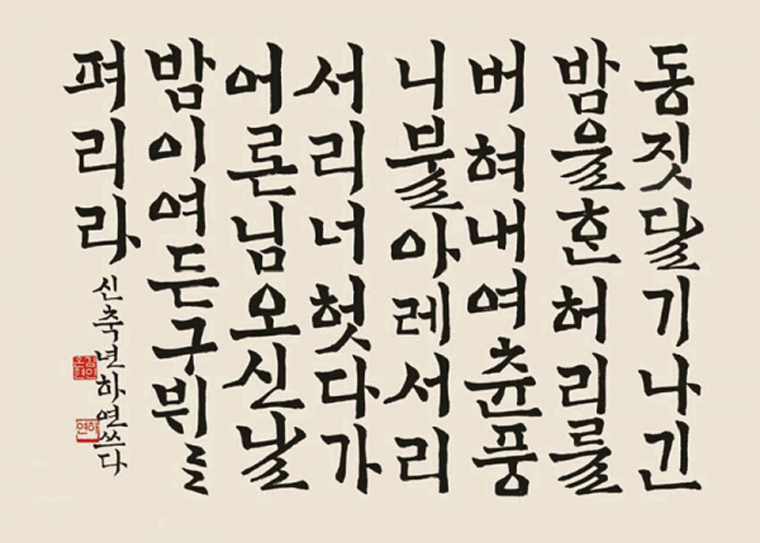 동짓달기나긴
밤을흔허리를
버혀내여츈풍
니불아레서리
서리너헛다가
어론님오신날
밤이여든구뷔〻
펴리라
신축년하연쓰다